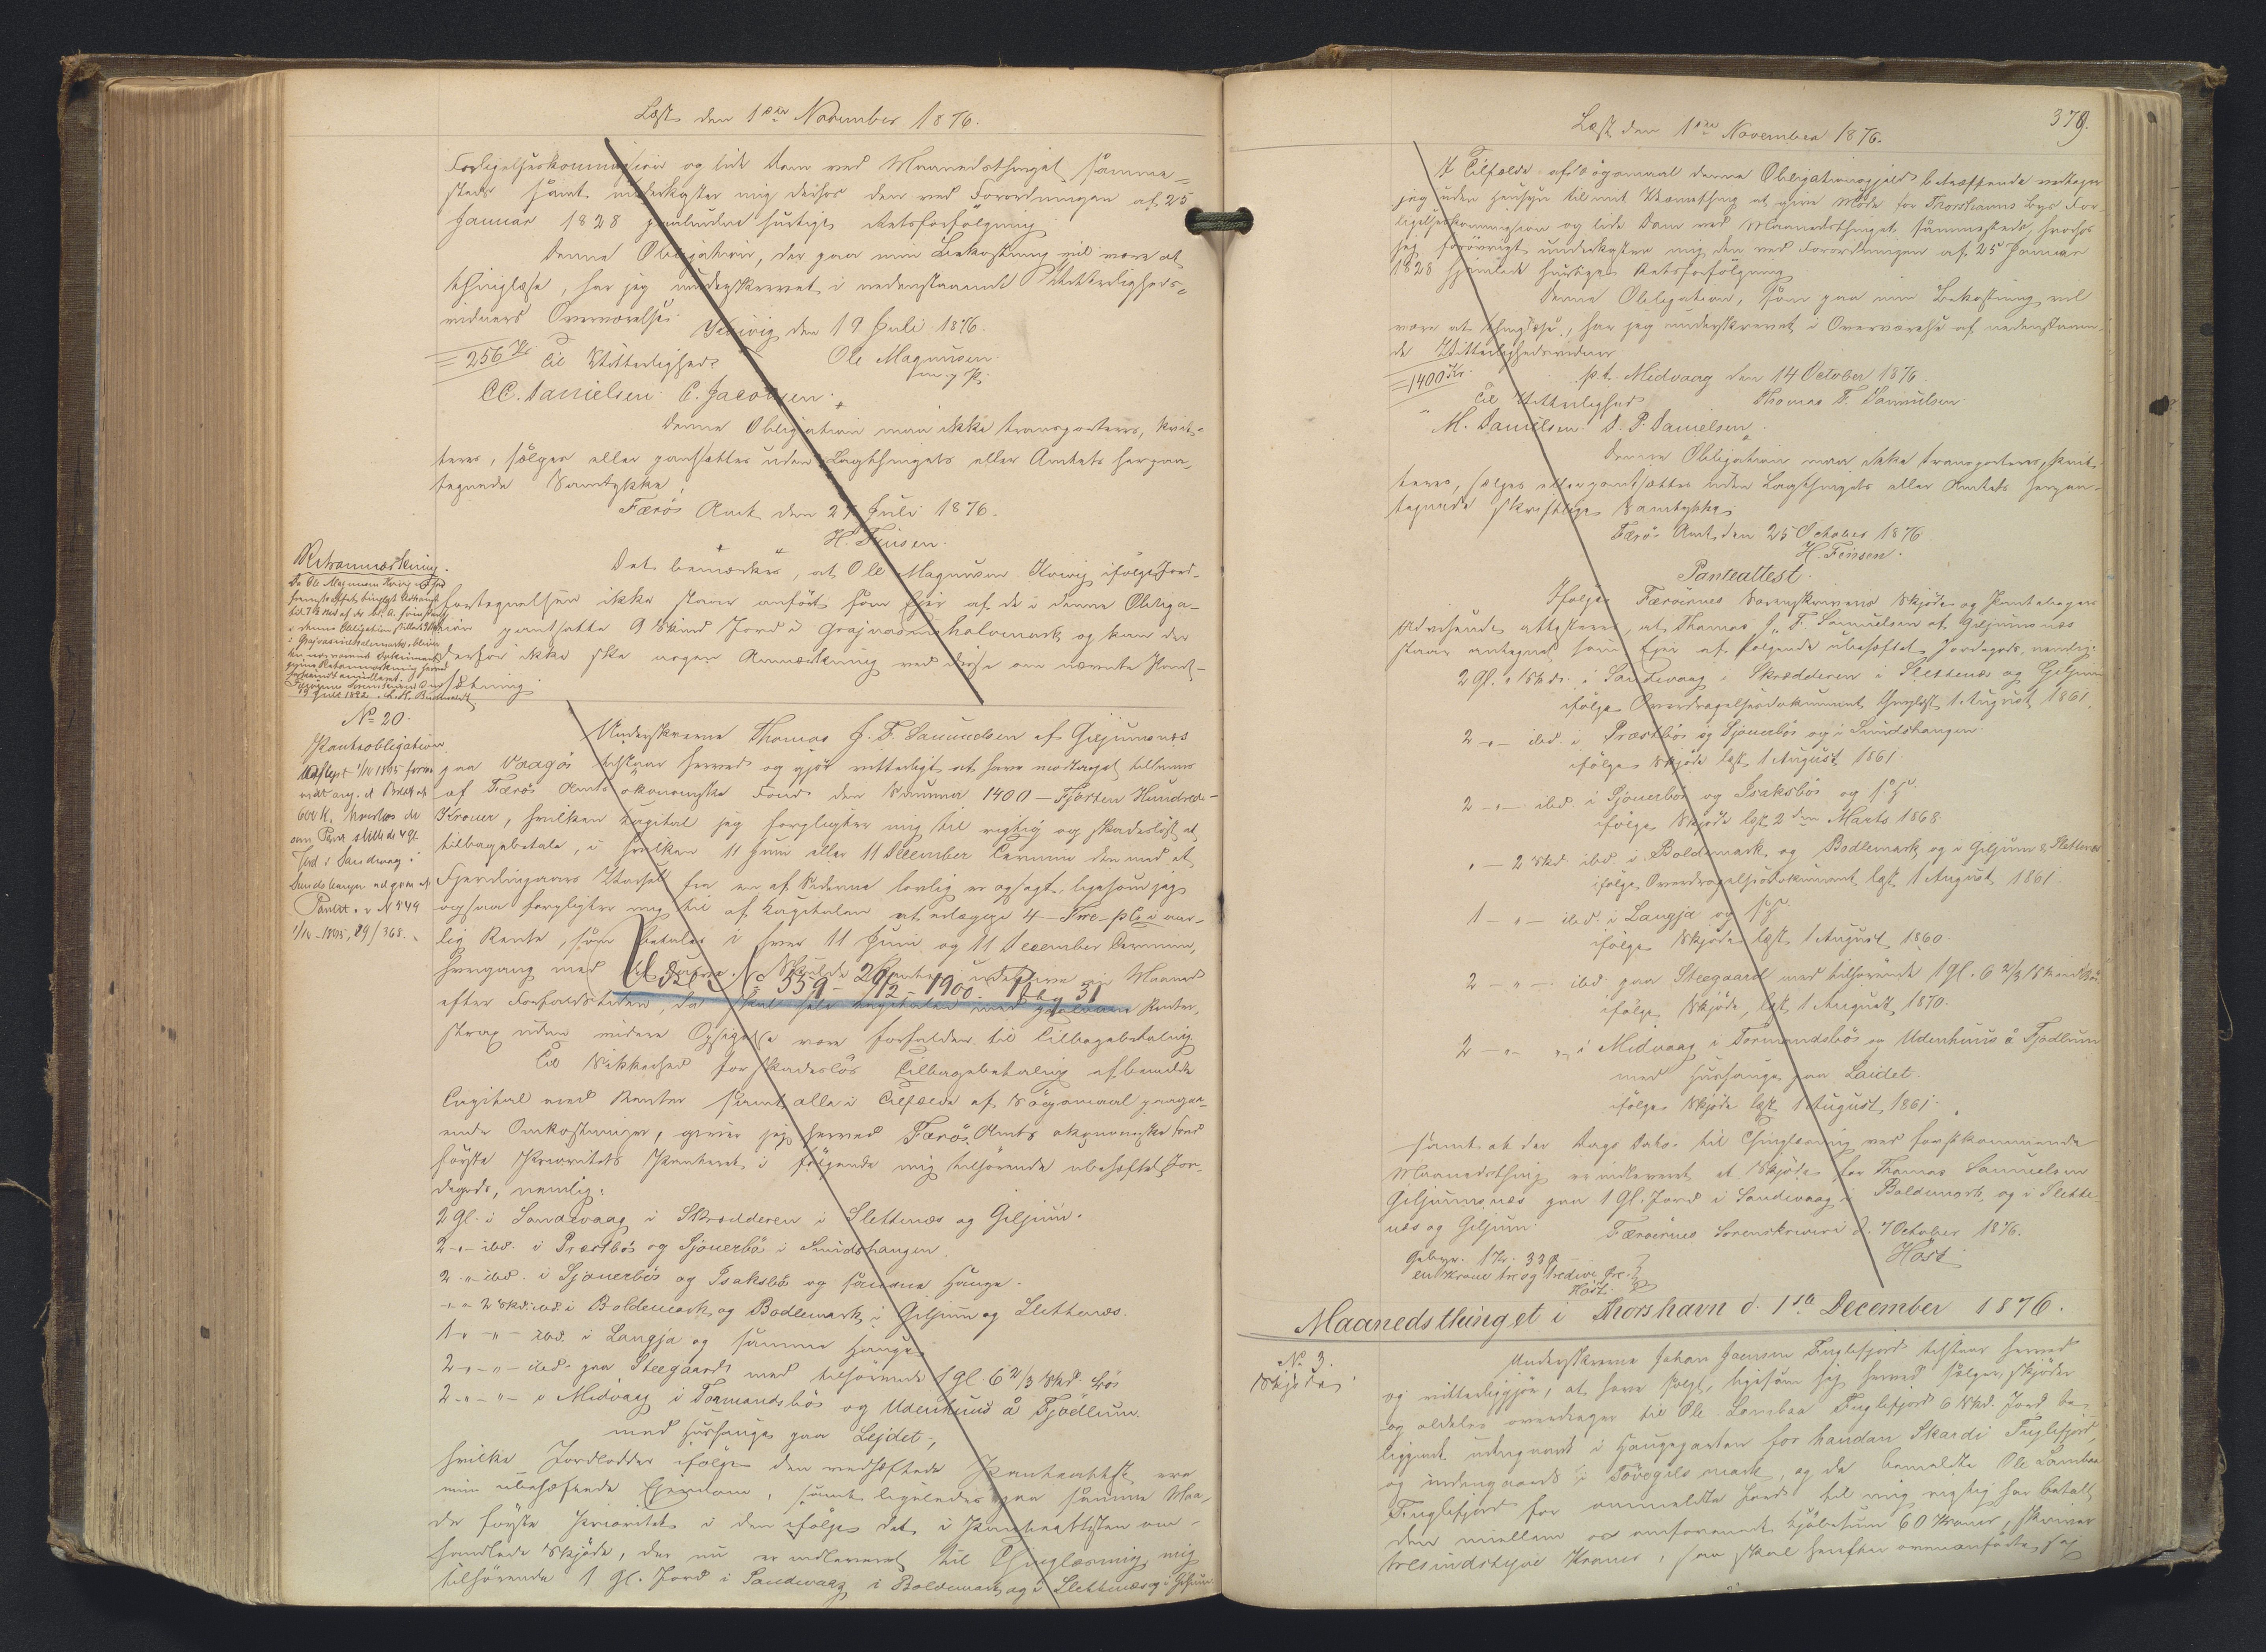 Læst den 1ste November 1876.
Forligelseskommission og lide Dom ved Maanedsthinget samme-
steds samt underkaster mig derhos den ved Forordningen af 25
Januar 1828 hurtige Retsforfølgning
Denne Obligation, der paa min Bekostning vil være at
thinglæse, har jeg underskrevet i nedenstaaende Vitterligheds-
vidners Overværelse.
den 19 Juli 1876.
= 256 Kr
Til Vitterlighed:
Ole Magnusen
m. f. P.
CC. Danielsen C. Jacobsen.
Denne Obligation maa ikke transporteres, kvit-
teres, sælges eller pantsættes uden Lagthingets eller Amtets herpaa
tegnede Samtykke,
Færö Amt den 27 Juli 1876.
H. Finsen.
Det bemærkes, at Ole Magnusen Kvivig ifølge Jord-
fortegnelsen ikke staar anført som Ejer af de i denne Obliga-
tion pantsatte 9 Skind Jord i halvmark, og kan der
derfor ikke ske nogen Anmærkning ved disse om nævnte Pant-
sætning.
Retsanmærkning.
No 20.
Pantobligation
Underskrevne Thomas J. F. Samuelsen af Giljumsnæs
paa Vaagö tilstaar herved og gjør vitterligt at have modtaget tillaans
af Færö Amts økonomiske Fond den Summa 1400 – Fjorten Hundrede –
Kroner, hvilken Kapital jeg forpligter mig til rigtig og skadesløst at
tilbagebetale, i hvilken 11 Juni eller 11 December Termin den med et
Fjerdingaars Varsel fra en af Siderne lovlig er opsagt, ligesom jeg
ogsaa forpligter mig til af Kapitalen at erlægge 4 – Fire – pCt i aar-
lig Rente, som betales i hver 11 Juni og 11 December Termin,
Udsl. No 559 – 20/12 – 1900.
efter Forfaldstiden, da skal hele Kapitalen med Renter,
strax uden videre Opsigelse være forfalden til Tilbagebetaling
Til Sikkerhed for skadesløs Tilbagebetaling af bemeldte
Capital med Renter samt alle i Tilfælde af Søgsmaal paagaa-
ende Omkostninger, giver jeg herved Færö Amts økonomiske Fond
første Prioritets Panteret i følgende mig tilhørende ubehæftet Jor-
degods, nemlig:
2 Gl. i Sandevaag i Skrædderen i Slettenæs og Giljum.
2 – " – ibd. i Præstbö og Sjouerbö i Smidshangen.
2 – " – ibd. i Sjouerbö og Isaksbö og samme Hauge.
" – 2 Skd. ibd. i Boldemark og Bodlemark i Giljum og Slettenæs.
1 – " – " – ibd. i Langja og samme Hauge
2 – " – " – ibd. paa Steegaard med tilhørende 1 Gl. 6 2/3 Skd. Bö
2 – " – " – i Midvaag i Tormandsbö og Udenhuus å Fjødlum
med Huushauge paa Lejdet –,
hvilke Jordlodder ifølge den vedhæftede Panteattest ere
min ubehæftede Ejendom, samt ligeledes paa samme Maa-
de første Prioritet i den ifølge det i Panteattesten om-
handlede Skjøde, der nu er indleveret til Thinglæsning mig
tilhørende 1 Gl. Jord i Sandevaag i Boldemark og i Slettenæs og i Giljum
379.
Læst den 1ste November 1876.
I Tilfælde af Søgsmaal denne Obligationsgjeld betræffende vedtager
jeg uden Hensyn til mit Værnething at give Møde for Thorshavns Byes For
ligelseskommission og lide Dom ved Maanedsthinget sammesteds, hvorhos
jeg forøvrigt underkaster mig den ved Forordningen af 25 Januar
1828 hjemlede hurtige Retsforfølgning
Denne Obligation, som paa min Bekostning vil
være at thinglæse, har jeg underskrevet i Overværelse af nedenstaaen-
de Vitterlighedsvidner
= 1400 Kr.
p. t. Midvaag den 14 October 1876
Til Vitterlighed
Thomas F. Samuelsen
M. Danielsen D. P. Danielsen.
Denne Obligation maa ikke transporteres, kvit-
teres, sælges eller pantsættes uden Lagthingets eller Amtets herpaa-
tegnede skriftlige Samtykke
Færö Amt, den 25 October 1876
H. Finsen.
Panteattest.
Ifølge Færøernes Sorenskriveries Skjøde og Pantebøgers
Udvisende attesteres, at Thomas J. F. Samuelsen af Giljumsnæs
staar antegnet som Ejer af følgende ubehæftet Jordegods, nemlig:
2 Gl. i Sandevaag i Skrædderen i Slettenæs og Giljum
ifølge Overdragelsesdokument thinglæst 1 August 1861.
2 – " – ibd. i Præstbö og Sjouerbö og i Smidshangen.
ifølge Skjøde læst 1 August 1861.
2 – " – ibd. i Sjouerbö og Isaksbö og s. H.
ifølge Skjøde læst 2den Marts 1868
" – 2 Skd. ibd. i Boldemark og Bodlemark og i Giljum & Slettenæs
ifølge Overdragelsesdokument læst 1 August 1861.
1 – " – ibd. i Langja og s. H.
ifølge Skjøde læst 1 August 1860.
2 – " – ibd. paa Steegaard med tilhørende 1 Gl. 6 2/3 Skind Bö
ifølge Skjøde, læst 1 August 1870.
2 – " – " i Midvaag i Tormandsbö og Udenhuus å Fjødlum
med Huushauge paa Laidet.
ifølge Skjøde læst 1 August 1861.
samt at der Dags Dato til Thinglæsning ved førstkommende
Maanedsthing er indleveret et Skjøde for Thomas Samuelsen
Giljumsnæs paa 1 Gl. Jord i Sandevaag i Boldemark og i Slette-
næs og Giljum.
Færøernes Sorenskriveri d. 7 October 1876.
Höst
Gebyr. 1 Kr. 33 Ø
en Krone tre og tredive Øre
Höst.
Maanedsthinget i Thorshavn d. 1ste December 1876.
No 3.
Skjøde
Underskrevne Johan Joensen Fuglefjord tilstaar herved
og vitterliggjør, at have solgt, ligesom jeg herved sælger, skjøder
og aldeles overdrager til Ole Lambaa Fuglefjord 6 Skd. Jord be-
liggende udengaards i Haugeparten for handan Skardi Fuglefjord,
og indengaards i mark, og da bemeldte Ole Lambaa
Fuglefjord for anmeldte Jord til mig rigtig har betalt
den mellem os omforenede Kjøbesum 60 Kroner, skriver
tresindstyve Kroner, saa skal herefter ovenanførte